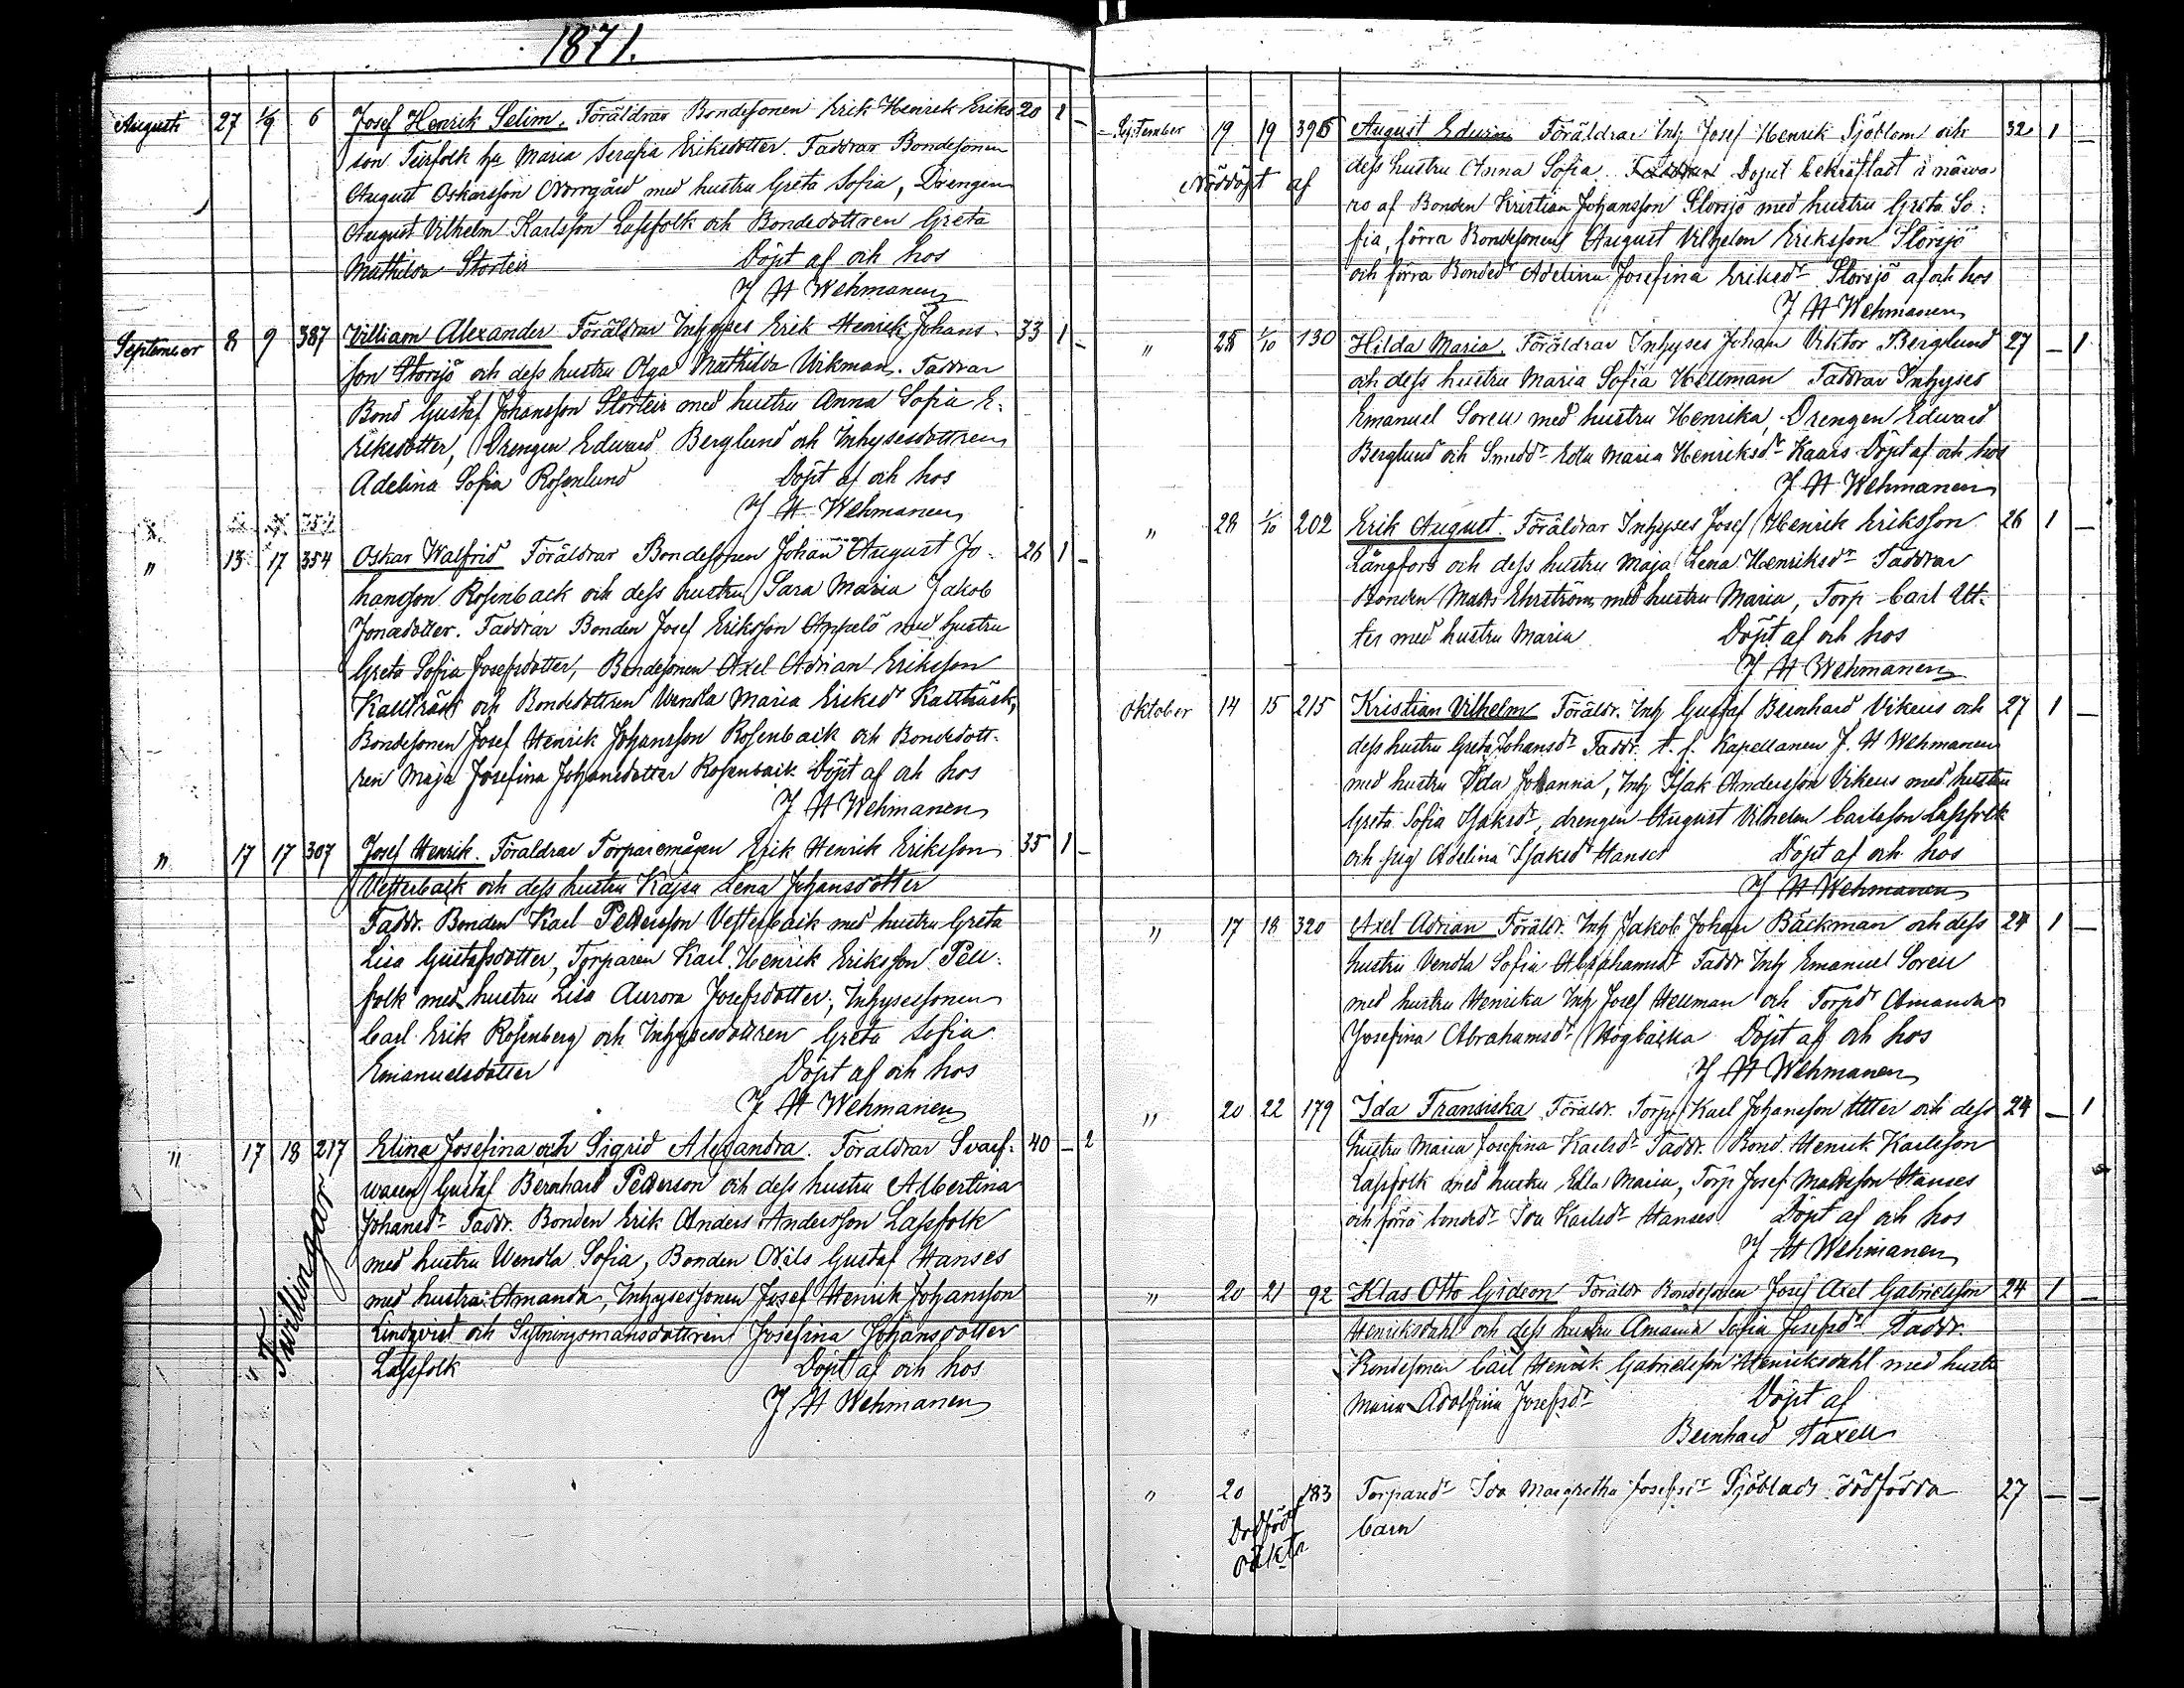 1871.
Augusti 27 1/9 6 Josef Henrik Selim. Föräldrar Bondesonen Erik Henrik Eriks 20 1 –
son Teirfolk Maria Serafia Eriksdotter. Faddrar Bondesonen
August Oskarsson Norrgård med hustru Greta Sofia, Drengen
August Vilhelm Karlsson Lassfolk och Bondedottren Greta
Mathilda Storteir Döpt af och hos
J H Wehmanen
September 8 9 387 William Alexander Föräldrar Inhyses Erik Henrik Johans- 33 1 –
son Storsjö och dess hustru Olga Mathilda Vikman. Faddrar
Bond Gustaf Johansson Storteir med hustru Anna Sofia E-
riksdotter, Drengen Edward Berglund och Inhysesdottren
Adelina Sofia Rosenlund Döpt af och hos
J H Wehmanen
" 13 17 354 Oskar Walfrid Föräldrar Bondesonen Johan August Jo- 26 1 –
hansson Rosenback och dess hustru Sara Maria Jakob
Jonasdotter. Faddrar Bonden Josef Eriksson Appelö med hustru
Greta Sofia Josefsdotter, Bondesonen Axel Adrian Eriksson
Kaitträsk och Bondedottren Wendla Maria Eriksdr Kaitträsk,
Bondesonen Josef Henrik Johansson Rosenback och Bondedott-
ren Maja Josefina Johansdotter Rosenback Döpt af och hos
J H Wehmanen
" 17 17 307 Josef Henrik. Föräldrar Torparemågen Erik Henrik Eriksson 35 1 –
Vesterback och dess hustru Kajsa Lena Johansdotter
Faddr. Bonden Karl Pettersson Vesterback med hustru Greta
Lisa Gustafsdotter, Torparen Karl Henrik Eriksson Pell-
folk med hustru Lisa Aurora Josefsdotter, Inhysessonen
Carl Erik Rosenberg och Inhysesdottren Greta Sofia
Emanuelsdotter Döpt af och hos
J H Wehmanen
" 17 18 217 Elina Josefina och Sigrid Alexandra. Föräldrar Svarf- 40 – 2
waren Gustaf Bernhard Petterson och dess hustru Albertina
Johansdr Faddr. Bonden Erik Anders Andersson Lassfolk
med hustru Wendla Sofia, Bonden Nils Gustaf Hanses
med hustru Amanda, Inhysessonen Josef Henrik Johansson
Lindqvist och Sytningsmansdottren Josefina Johansdotter
" Tvillingar Lassfolk Döpt af och hos
J H Wehmanen
September 19 19 396 August Edvin Föräldrar Inh Josef Henrik Sjöblom och 32 1 –
Nöddöpt af dess hustru Anna Sofia Faddrar Dopet bekräftadt i närva-
ro af Bonden Kristian Johansson Storsjö med hustru Greta So-
fia, förra Bondesonen August Vilhelm Eriksson Storsjö
och förra Bondedr Adelina Josefina Eriksdr Storsjö af och hos
J H Wehmanen
" 28 1/10 130 Hilda Maria. Föräldrar Inhyses Johan Viktor Berglund 27 – 1
och dess hustru Maria Sofia Hellman Faddrar Inhyses
Emanuel Sorell med hustru Henrika, Drengen Edward
Berglund och Smeddr Edla Maria Henriksdr Kaars Döpt af och hos
J H Wehmanen
" 28 1/10 202 Erik August. Föräldrar Inhyses Josef Henrik Eriksson 26 1 –
Långfors och dess hustru Maja Lena Henriksdr Faddrar
Bonden Matts Ehrström med hustru Maria, Torp Carl Ut-
ter med hustru Maria Döpt af och hos
J H Wehmanen
Oktober 14 15 215 Kristian Vilhelm Föräldr. Inh Gustaf Bernhard Vikeus och 27 1 –
dess hustru Greta Johansdr Faddr. t. f. Kapellanen J. H Wehmanen
med hustru Ida Johanna, Inh Isak Andersson Vikeus med hustru
Greta Sofia Isaksdr, drengen August Vilhelm Carlsson Lassfolk
och pig Adelina Isaksdr Hanses Döpt af och hos
J H Wehmanen
" 17 18 320 Axel Adrian Föräldr. Inh Jakob Johan Bäckman och dess 24 1 –
hustru Vendla Sofia Abrahamsdr Faddr Inh Emanuel Sorell
med hustru Henrika Inh Josef Hellman och Torpdr Amanda
Josefina Abrahamsdr Högbacka Döpt af och hos
J H Wehmanen
" 20 22 179 Ida Fransiska Föräldr. Torp Karl Johansson Utter och dess 24 – 1
hustru Maria Josefina Karlsdr Faddr. Bond Henrik Karlsson
Lassfolk med hustru Edla Maria, Torp Josef Mattsson Hanses
och förra bondedr Ida Karlsdr Hanses Döpt af och hos
J H Wehmanen
" 20 21 92 Klas Otto Gideon Föräldr Bondesonen Josef Axel Gabrielsson 24 1 –
Henriksdahl och dess hustru Amanda Sofia Josefsdr Faddr.
Bondesonen Carl Henrik Gabrielsson Henriksdahl med hustru
Maria Adolfina Josefsdr Döpt af
Bernhard Taxell
" 20 183 Torparedr Ida Margretha Josefsdr Sjöblads dödfödda 27 – –
Dödfödt oäkta barn